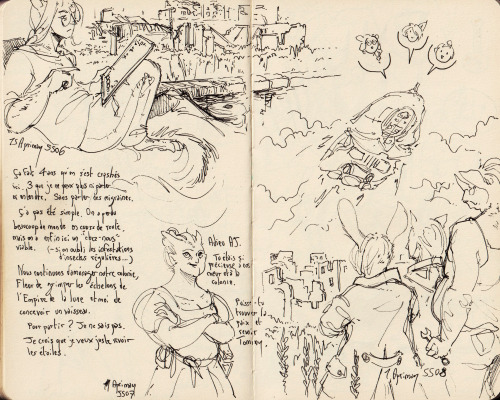 15 Aprimay 5506
Ça fait 4 ans qu'on s'est crashés
ici. 3 que je ne peux plus ni parler
ni entendre. Sans parler des migraines.
Ç'a pas été simple. On a perdu
beaucoup de monde en cours de route,
mais on a enfin ici un chez-nous
viable. (- si on oublie les infestations
d'insectes régulières...)
Nous continuons d'aménager notre colonie,
Fleur de grimper les échelons de
l'Empire de la lune et moi de
concevoir un vaisseau.
Pour partir ? Je ne sais pas.
Je crois que je veux juste revoir
les étoiles.
Adieu AJ.
Tu étais si
précieuse à nos
cœurs et à la
colonie.
Puisses-tu
trouver la
paix et
revoir
Tommy
Aprimay
5507
Aprimay 5508